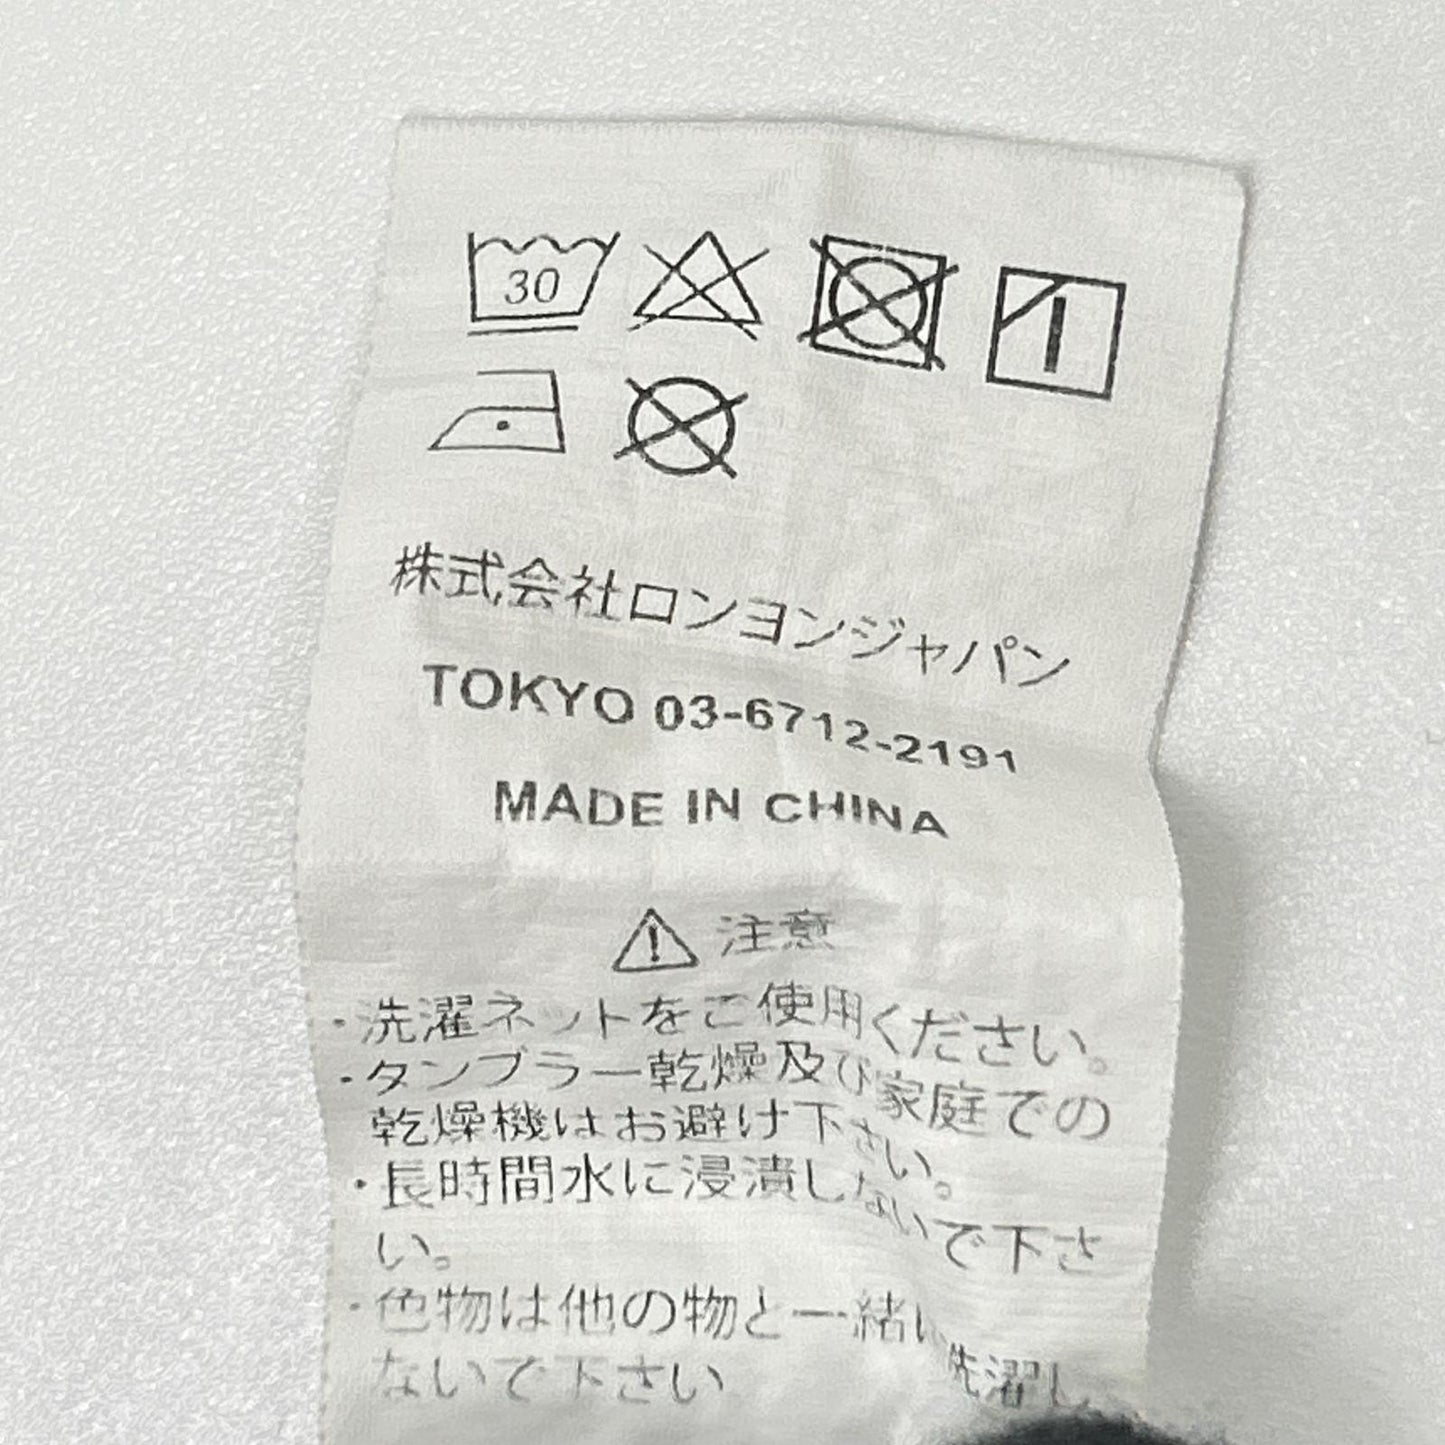 30
株式会社ロンヨンジャパン
TOKYO 03-6712-2191
MADE IN CHINA
注意
・洗濯ネットをご使用ください。
・タンブラー乾燥及び家庭での
乾燥機はお避け下さい。
・長時間水に浸漬しないで下さ
い。
・色物は他の物と一緒に洗濯し
ないで下さい